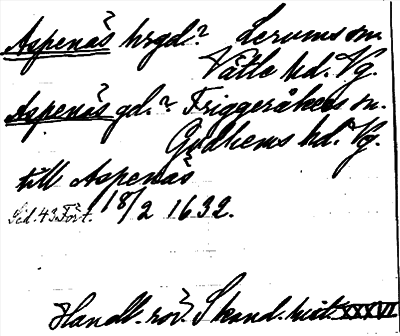 Aspenäs hrgd? Lerums sn.
Vätle hd. Vg.
Aspenäs gd.? Friggeråkers sn.
Gudhems hd. Vg.
till Aspenäs
Sid. 43. Fört. 18/2 1632.
Handl. rör. Skand. hist. XXXVI